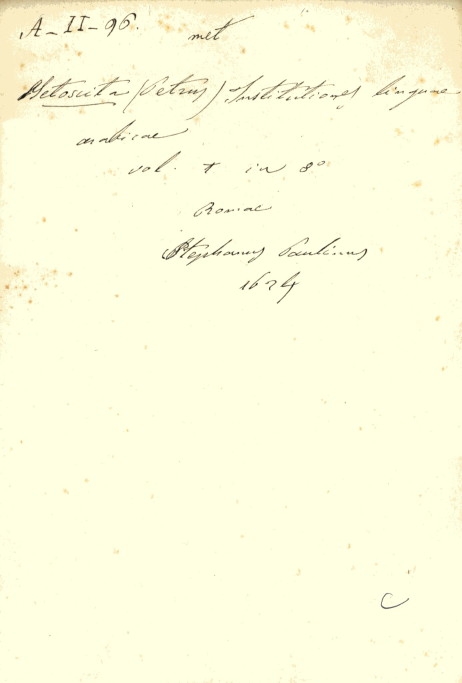 A-II-96.
met
Metoscita (Petrus) Institutiones linguae
arabicae
vol. 1 in 8°
Romae
Stephanus Paulinus
1624
C